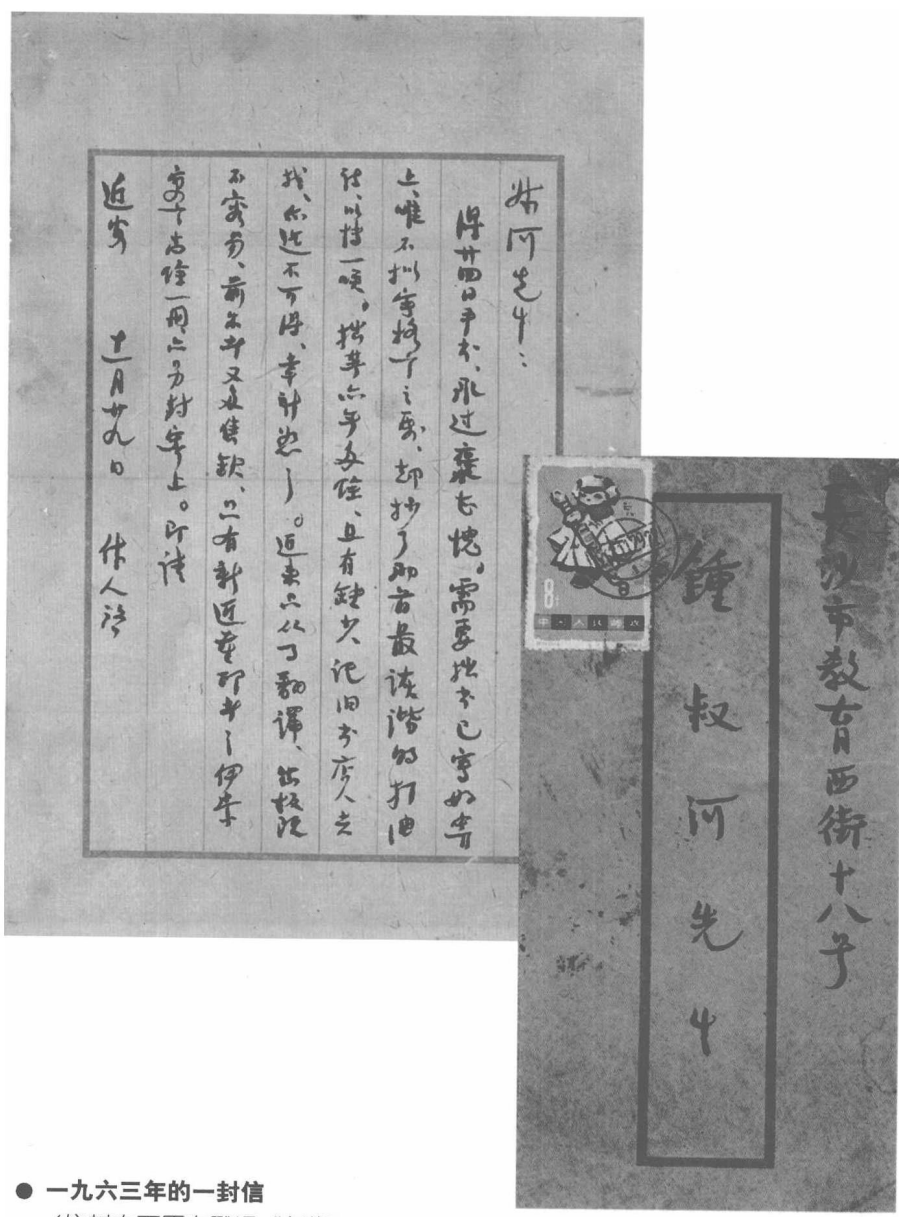 叔河先生：
得廿四日手书、承过奖甚愧。需要拙书已写好寄
上、唯不拟写格言之类、却抄了两首最诙谐的打油
诗、以博一噱。拙著亦无多馀、且有缺少、记旧书店人去
找、亦迄不可得、幸祈恕之。近来只从事翻译、出板既
不容易、前出书又多售缺、只有新近重印书之伊索
寓言尚馀一册、亦另封寄上。即请
近安 十一月廿九日 作人启
长沙市教育西街十八号
鍾叔河先生
8分
中国人民邮政
● 一九六三年的一封信